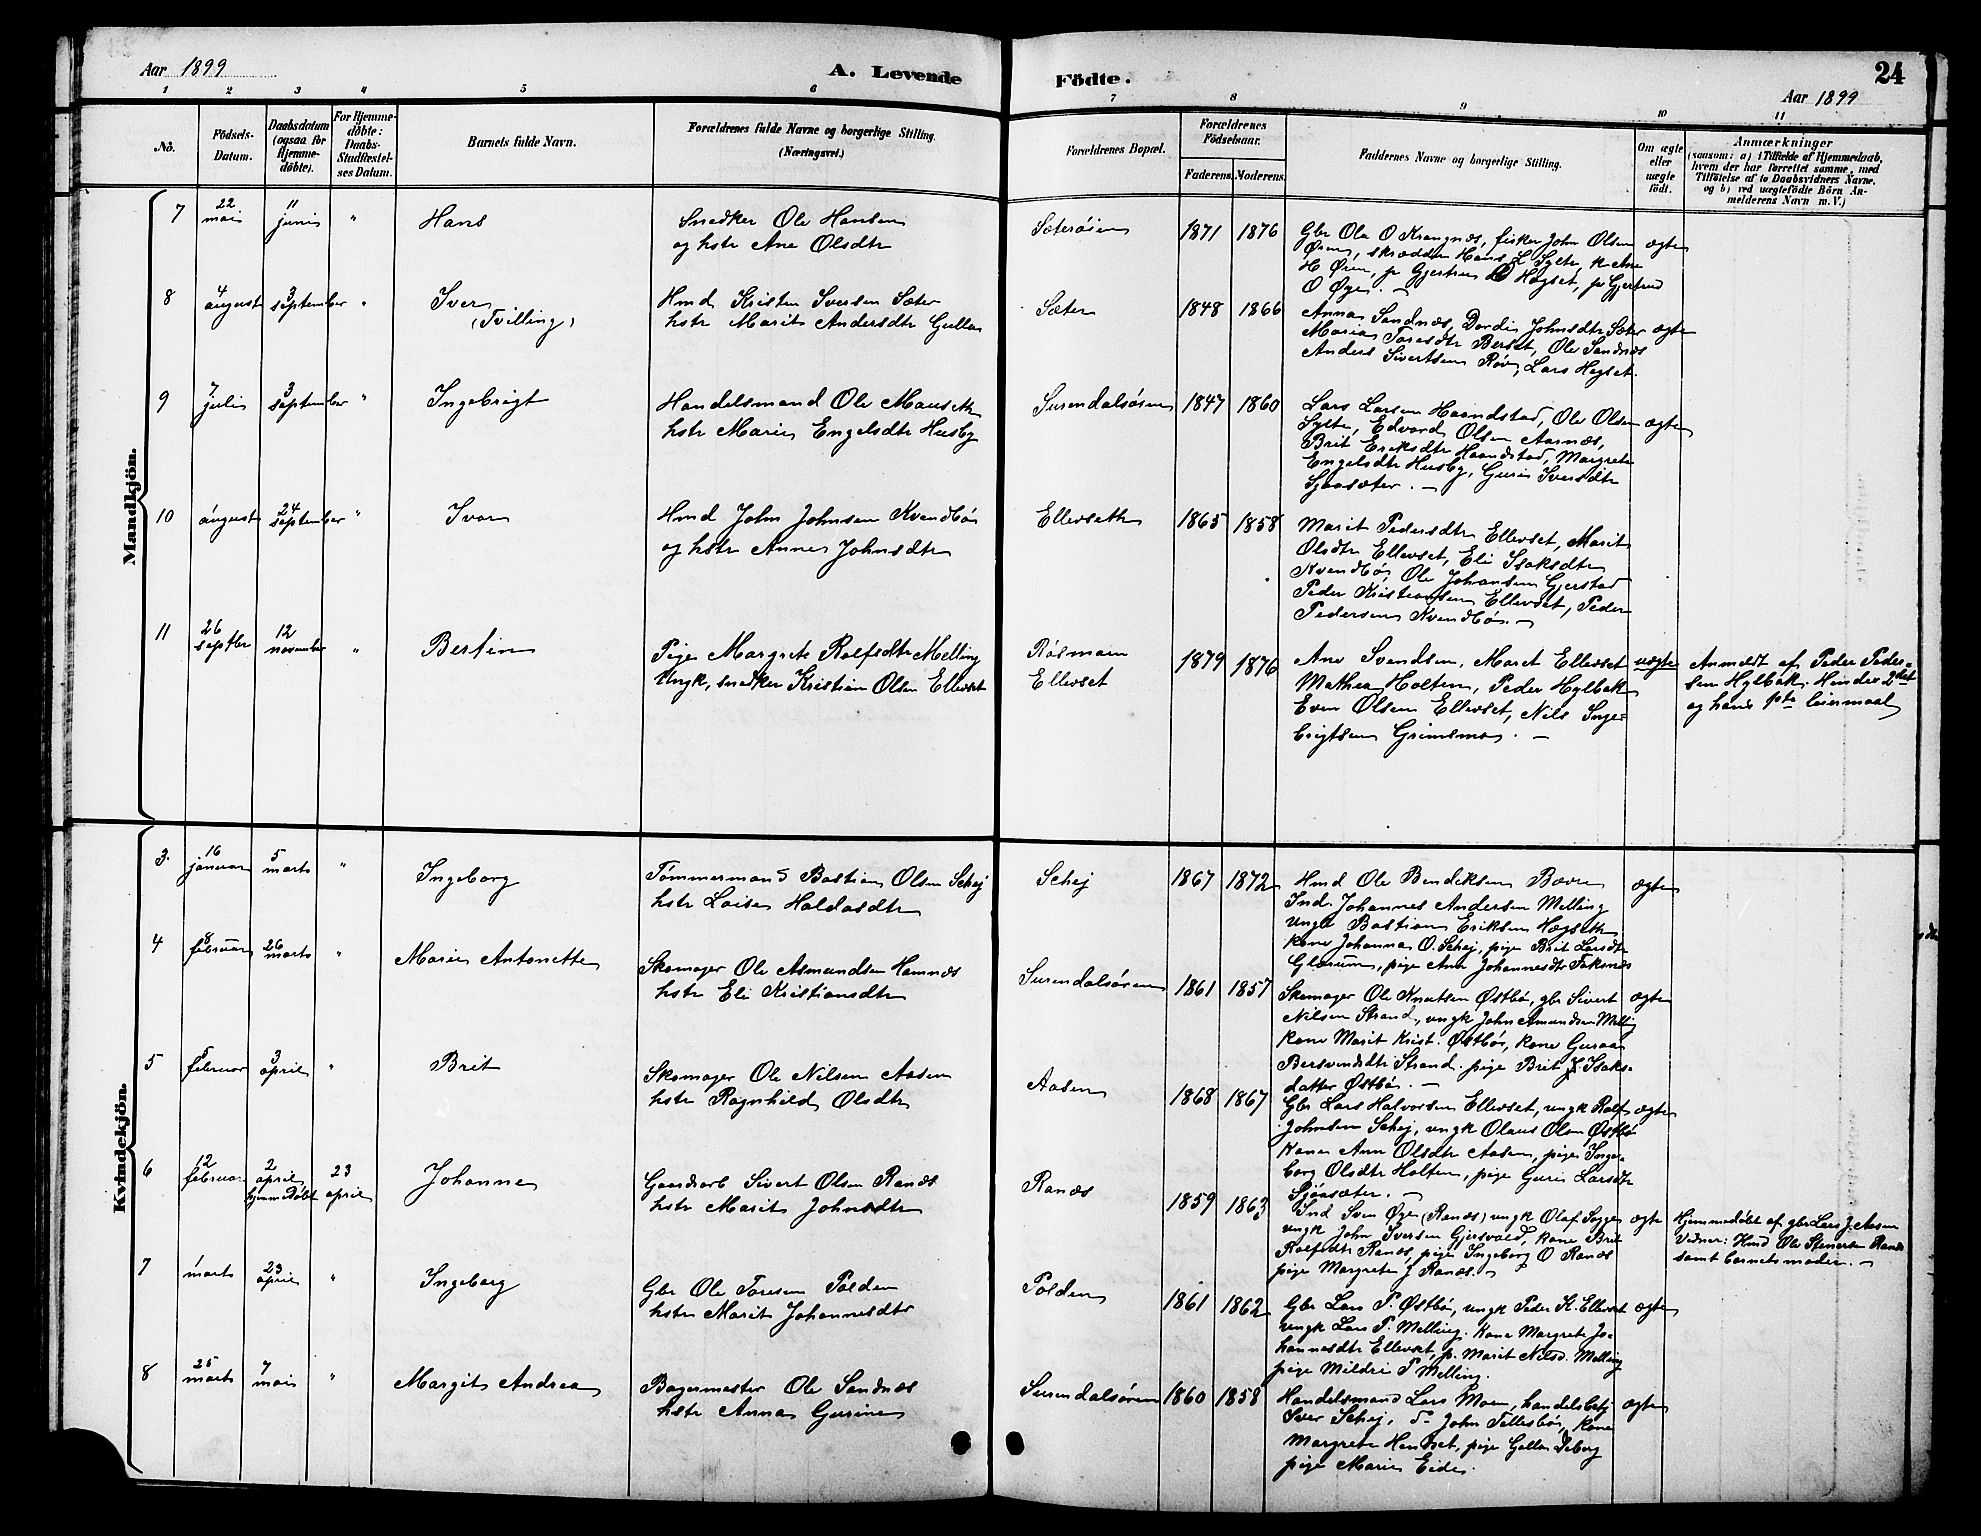 Aar 1899
A. Levende
Födte.
24
Aar 1899
1 2 3 4 5 6 7 8 9 10 11
No.
Födsels-
Datum.
Daabsdatum
(ogsaa for
Hjemme-
døbte).
For Hjemme-
døbte:
Daabs-
Stadfæstel-
ses Datum.
Barnets fulde Navn.
Forældrenes fulde Navne og borgerlige Stilling.
(Næringsvei.)
Forældrenes Bopæl.
Forældrenes
Fødselsaar.
Faderens. Moderens.
Faddernes Navne og borgerlige Stilling.
Om ægte
eller
uægte
født.
Anmærkninger
(saasom: a) i Tilfælde af Hjemmedaab,
hvem der har forrettet samme, med
Tilføielse af to Daabsvidners Navne,
og b) ved uægtefødte Børn An-
melderens Navn m. V.)
Mandkjön.
7
22
mai
11
juni
"
Hans
Snedker Ole Hansen
og hstr Ane Olsdtr
Sæterøien
1871 1876
Gbr Ole O Krangnæs, fisker John Olsen
Øren, skrædder Hans L Sylte k Ane
H Øren, p Gjertrud O Hægset, p Gjertrud
O Øye. —
ægte
8
4
august
3
september
"
Iver
(Tvilling)
Hmd Kristen Iversen Sæter
hstr Marit Andersdtr Gulla
Sæter
1848 1866
Anna Sandnæs, Dordi Johnsdtr Sæter
Maria Toresdtr Berset, Ole Sandnæs
Anders Sivertsen Røv, Lars Hegset.
ægte
9
7
juli
3
september
"
Ingebrigt
Handelsmand Ole Mauseth
hstr Marie Engelsdtr Husby
Surendalsøren
1847 1860
Lars Larsen Haandstad, Ole Olsen
Sylte, Edvard Olsen Aarnæs,
Brit Eriksdtr Haandstad, Margrete
Engelsdtr Husby, Guri Iversdtr
Sjøasæter. —
ægte
10
august
24
september
"
Ivar
Hmd John Johnsen Kvendbø
og hstr Anne Johnsdtr
Ellevseth
1865 1858
Marit Pedersdtr Ellevset, Marit
Olsdtr Ellevset, Eli Isaksdtr
Kvendbø, Ole Johansen Gjerstad
Peder Kristiansen Ellevset, Peder
Pedersen Kvendbø. —
11
26
septbr
12
november
"
Bertin
Pige Margrete Rolfsdtr Melling
Ungk, snedker Kristian Olsen Ellevset
Røsmoen
Ellevset
1879 1876
Ane Svendsen, Maret Ellevset
Mathea Holten, Peder Hylbak
Even Olsen Ellevset, Nils Inge-
brigtsen Grimsmo. —
uægte
Anmeldt af Peder Peder-
sen Hylbak. Hendes 2det
og hans 1ste leiermaal
Kvindekjön.
3.
16
januar
5
marts
"
Ingeborg
Tømmermand Bastian Olsen Schej
hstr Loise Haldosdtr
Schej
1867 1872
Hmd Ole Bendiksen Bøvre
Ind. Johannes Andersen Melling
Ungk Bastian Eriksen Hægseth
Kone Johanna O. Schej, pige Brit Larsdtr
Glærum, pige Ane Johannesdtr Faksnes
ægte
4
8
februar
26
marts
"
Marie Antonette
Skomager Ole Asmundsen Hamnæs
hstr Eli Kristiansdtr
Surendalsøren
1861 1857
Skomager Ole Knutsen Østbø, gbr Sivert
Nilsen Strand, ungk John Amundsen Melling
Kone Marit Krist. Østbø, Kone Guroe
Bersvendsdtr Strand, pige Brit Isaks-
datter Østbø. —
ægte
5
5
februar
3
april
"
Brit
Skomager Ole Nilsen Aasen
hstr Ragnhild Olsdtr
Aasen
1868 1867
Gbr Lars Halvorsen Ellevset, ungk Rolf
Johnsen Schej, ungk Olaus Olsen Østbø
Kone Ane Olsdtr Aasen, pige Inge-
borg Olsdtr Holten, pige Guri Larsdtr
Sjøasæter. —
ægte
6
12
februar
2
april
hjemmedøbt
23
april
Johanne
Gaardarb Sivert Olsen Ranæs
hstr Marit Johnsdtr
Ranæs
1859 1863
Ind Sven Øye (Ranæs) ungk Olaf Sogge
ungk John Iversen Gjersvold, kone Brit
Rolfsdtr Ranæs, pige Ingeborg O Ranæs
pige Margrete J Ranæs. —
ægte
Hjemmedøbt af gbr Lars J. Aasen
Vidner: Hmd Ole Stenersen Ranæs
samt barnets moder. —
7
marts
23
april
"
Ingeborg
Gbr Ole Toresen Polden
hstr Marit Johannesdtr
Polden
1861 1862
Gbr Lars P. Østbø, ungk Peder K. Ellevset
ungk Lars P. Melling. Kone Margrete Jo-
hannesdtr Ellevset, p. Marit Nilsd. Melling
pige Mildri P Melling.
ægte
8
25
marts
7
mai
"
Margit Andrea
Bagermester Ole Sandnæs
hstr Anna Gurine
Surendalsøren
1860 1858
Handelsmand Lars Moen, handelsbetj
Iver Schej, do John Tellesbø, Kone
Margrete Henset, pige Galla
pige Marie Eide.
ægte